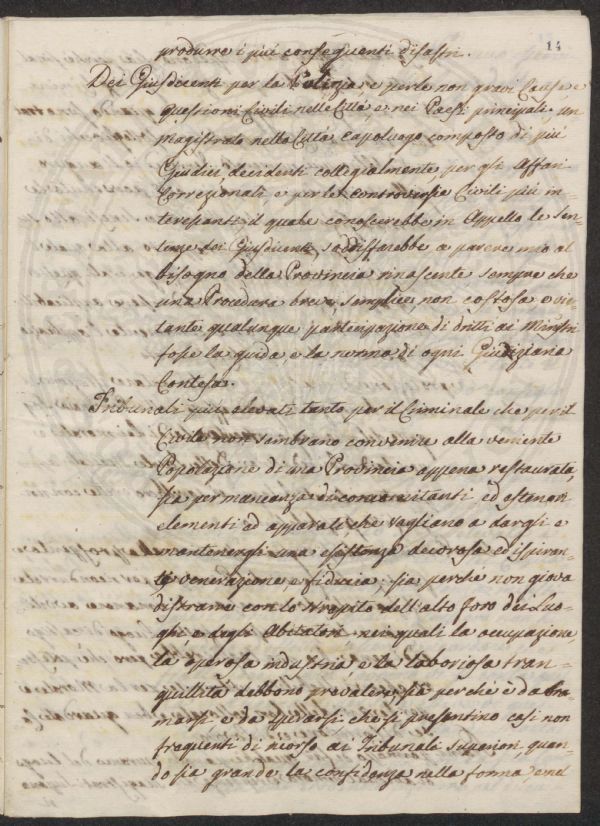 14
produrre i più conseguenti disastri.
Dei Giusdicenti per la Polizia, e per le non gravi Cause e
questioni Civili nelle Città, e nei Paesi principali. un
magistrato nella Città Capoluogo composto di più
Giudici decidenti collegialmente per gli Affari
Correzionali e per le controversie Civili più in=
teressanti il quale conoscerebbe in Appello le sen=
tenze dei Giusdicenti, soddisfarebbe a parere mio al
bisogno della Provincia rinascente sempre che
una Procedura breve, semplice, non costosa e vie=
tante qualunque participazione di dritti ai Ministri
fosse la guida, e la norma di ogni Giudiziaria
Contesa.
Tribunali più elevati tanto per il Criminale che per il
Civile non sembrano convenire alla veniente
Popolazione di una Provincia appena restaurata,
sia per mancanza di concomitanti ed esteriori
elementi ed apparato che vagliano a dargli e
mantenergli una esistenza decorosa ed ispiran=
te venerazione e fiducia; sia perché non giova
distrarre con lo strepito dell'alto foro dei Luo=
ghi e degli Abitatori, nei quali la occupazione,
la operosa industria, e la laboriosa tran=
quillità debbono prevalere, sia perché è da bra=
marsi e da sperarsi che si presentino casi non
frequenti di ricorso ai Tribunali Superiori, quan=
do sia grande la confidenza nella forma, e nel